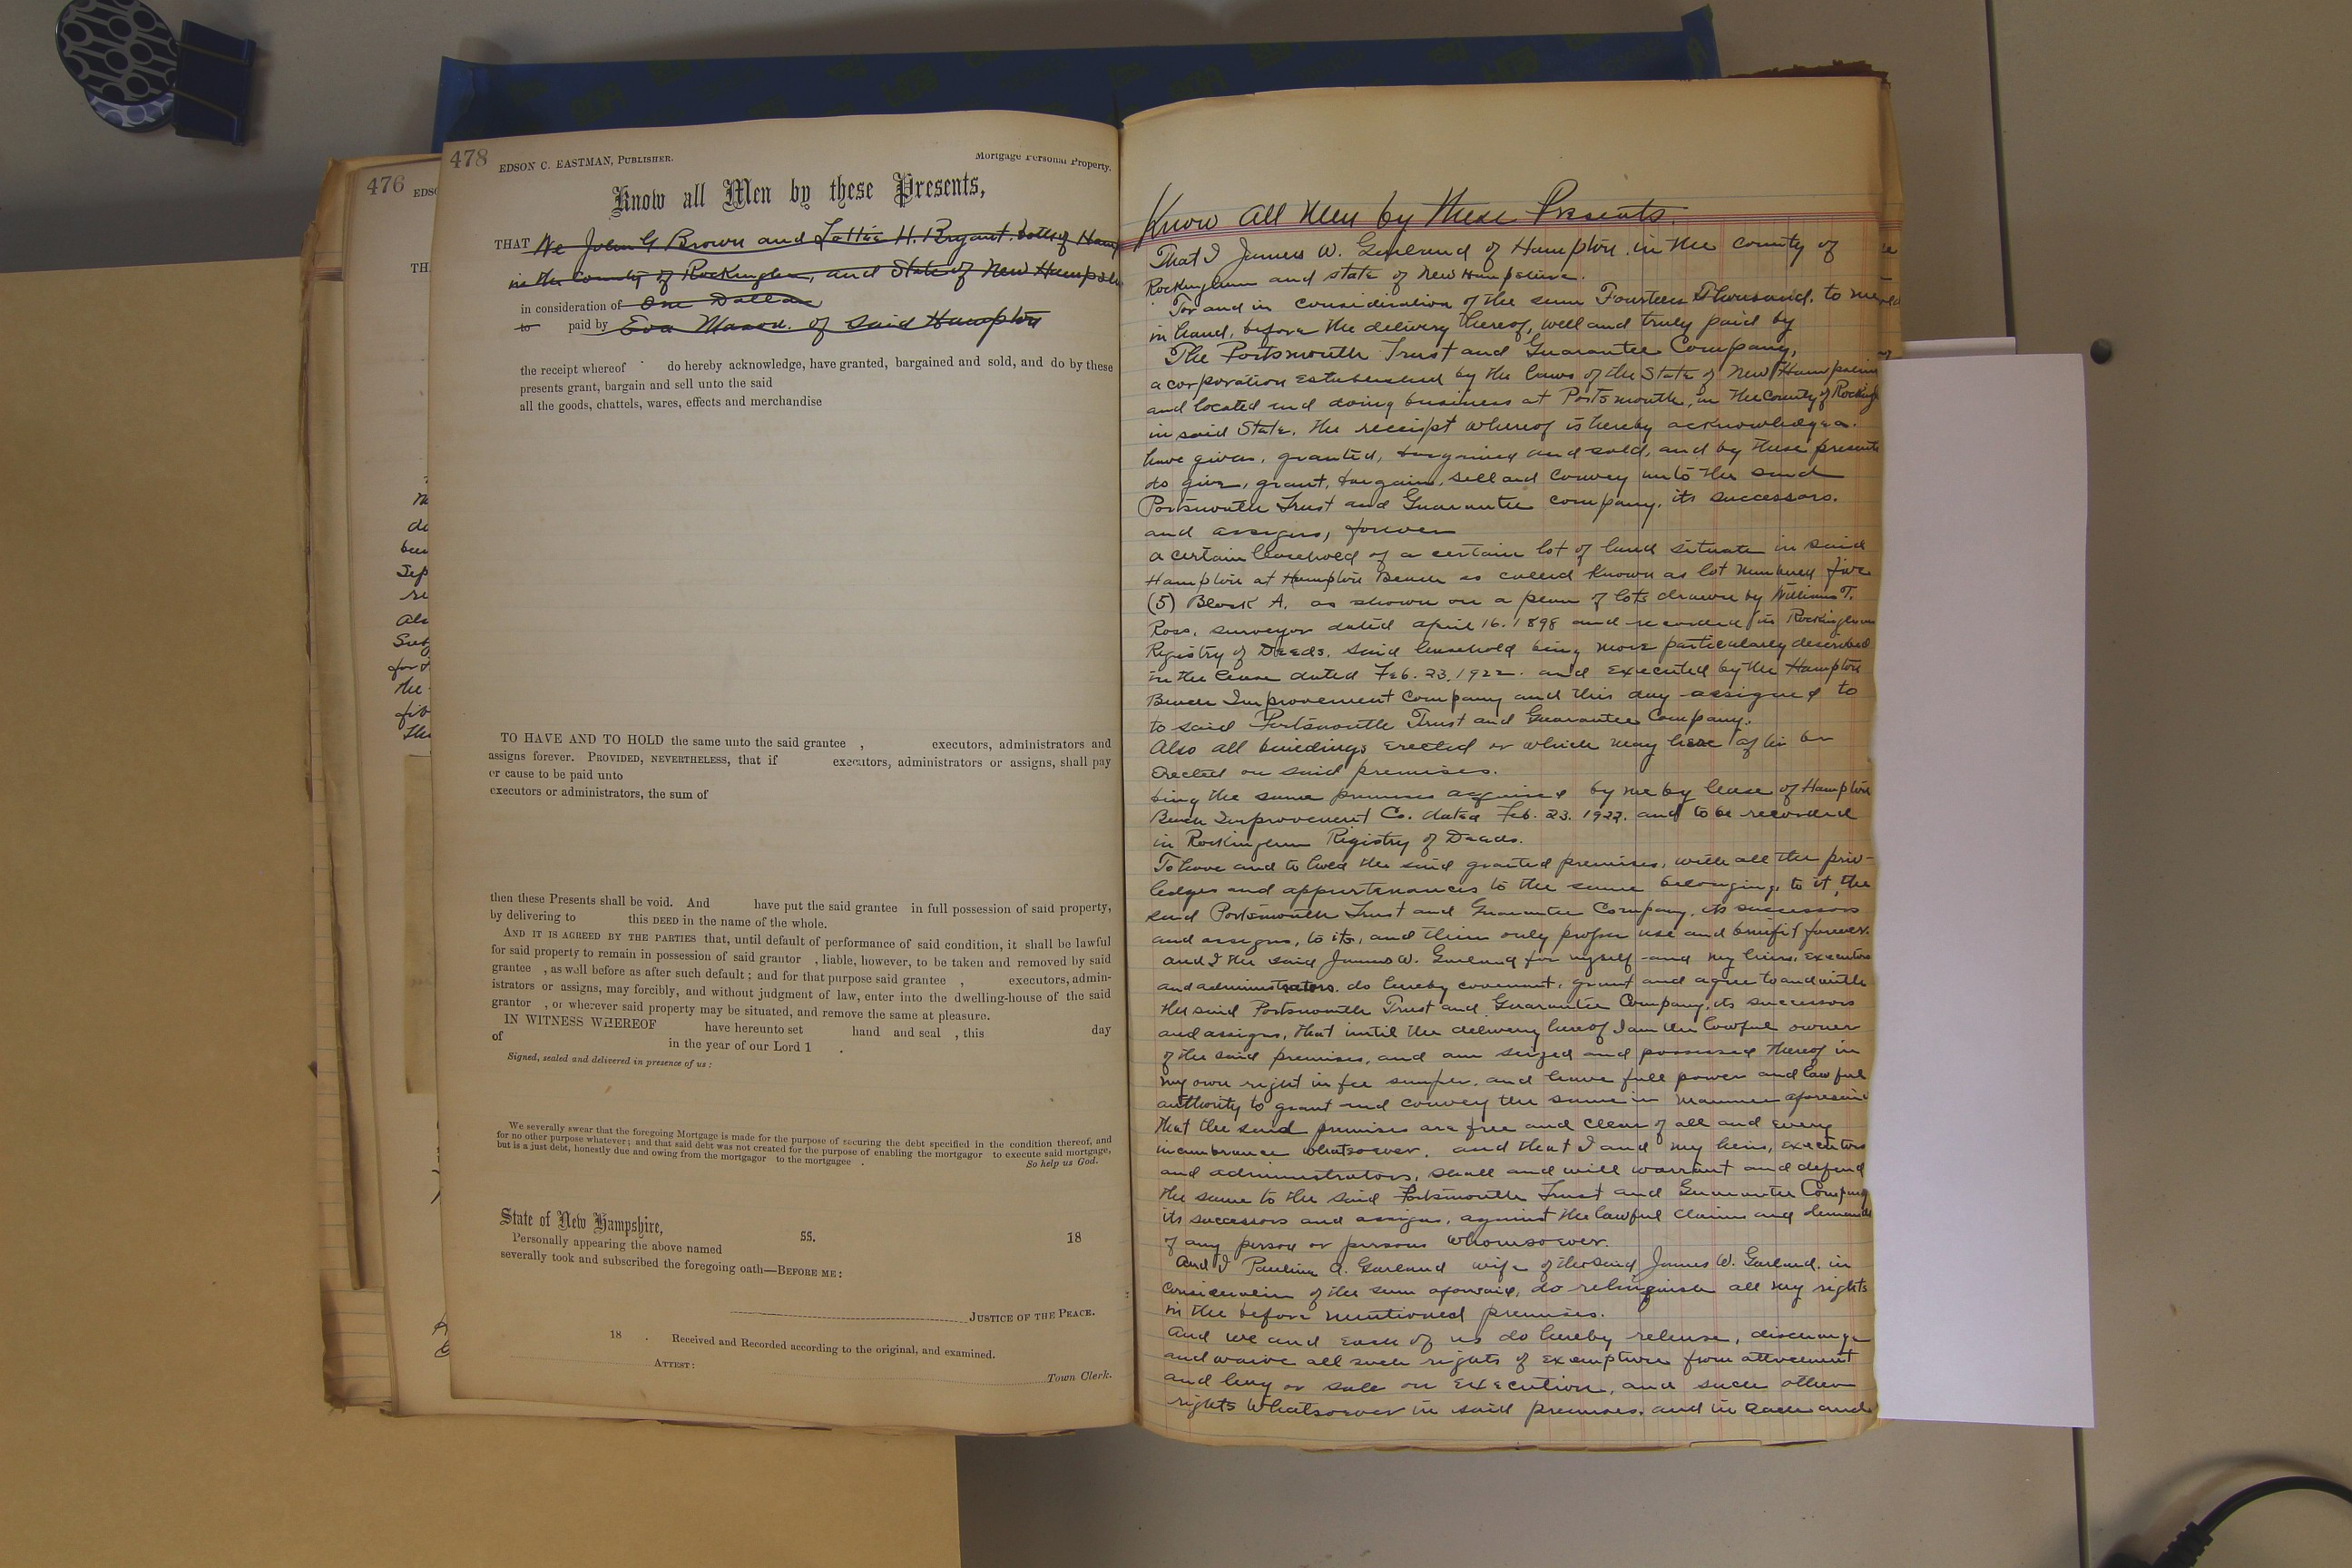 476 EDSO
TH
478 EDSON C. EASTMAN, PUBLISHER. Mortgage Personal Property.
Know all Men by these Presents,
THAT We John G Brown and Lottie H. Bryant. both of Ham
in the County of Rockingham, and State of New Hampsh
in consideration of One Dollar
to paid by Eva Mason. of said Hampton
the receipt whereof do hereby acknowledge, have granted, bargained and sold, and do by these
presents grant, bargain and sell unto the said
all the goods, chattels, wares, effects and merchandise
TO HAVE AND TO HOLD the same unto the said grantee , executors, administrators and
assigns forever. PROVIDED, NEVERTHELESS, that if executors, administrators or assigns, shall pay
or cause to be paid unto
executors or administrators, the sum of
then these Presents shall be void. And have put the said grantee in full possession of said property,
by delivering to this DEED in the name of the whole.
AND IT IS AGREED BY THE PARTIES that, until default of performance of said condition, it shall be lawful
for said property to remain in possession of said grantor , liable, however, to be taken and removed by said
grantee , as well before as after such default ; and for that purpose said grantee , executors, admin-
istrators or assigns, may forcibly, and without judgment of law, enter into the dwelling-house of the said
grantor , or wherever said property may be situated, and remove the same at pleasure.
IN WITNESS WHEREOF have hereunto set hand and seal , this day
of in the year of our Lord 1 .
Signed, sealed and delivered in presence of us :
We severally swear that the foregoing Mortgage is made for the purpose of securing the debt specified in the condition thereof, and
for no other purpose whatever ; and that said debt was not created for the purpose of enabling the mortgagor to execute said mortgage,
but is a just debt, honestly due and owing from the mortgagor to the mortgagee . So help us God.
State of New Hampshire, ss. 18
Personally appearing the above named
severally took and subscribed the foregoing oath—BEFORE ME :
JUSTICE OF THE PEACE.
18 . Received and Recorded according to the original, and examined.
ATTEST :
Town Clerk.
Know all Men by these Presents.
That I James W. Garland of Hampton. in the County of
Rockingham and state of New Hampshire.
For and in consideration of the sum Fourteen Thousand. to me
in hand, before the delivery thereof, well and truly paid by
The Portsmouth Trust and Guarantee Company,
a corporation established by the laws of the State of New Hampshire
and located and doing business at Portsmouth, in the County of Rocking
in said State. the receipt whereof is hereby acknowledged.
have given, granted, bargained and sold, and by these presents
do give, grant, bargain, sell and convey unto the said
Portsmouth Trust and Guarantee Company, its successors.
and assigns, forever
a certain leasehold of a certain lot of land situate in said
Hampton at Hampton Beach so called known as lot numbered five
(5) Block A. as shown on a plan of lots drawn by William T.
Ross, surveyor dated april 16. 1898 and recorded in Rockingham
Registry of Deeds. said leasehold being more particularly described
in the lease dated Feb. 23. 1922. and executed by the Hampton
Beach Improvement Company and this day assigned to
to said Portsmouth Trust and Guarantee Company.
Also all buildings erected or which may here after be
erected on said premises.
being the same premises acquired by me by lease of Hampton
Beach Improvement Co. dated Feb. 23. 1922. and to be recorded
in Rockingham Registry of Deeds.
To have and to hold the said granted premises, with all the priv-
ledges and appurtenances to the same belonging, to it, the
said Portsmouth Trust and Guarantee Company, its successors
and assigns, to its, and their only proper use and benifit forever.
and I the said James W. Garland for myself and my heirs, executors
and administrators. do hereby covenant, grant and agree to and with
the said Portsmouth Trust and Guarantee Company, its successors
and assigns, that until the delivery hereof I am the lawful owner
of the said premises, and am seized and possessed thereof in
my own right in fee simple. and have full power and lawful
authority to grant and convey the same in manner aforesaid
that the said premises are free and clear of all and every
incumbrance whatsoever. and that I and my heirs, executors
and administrators, shall and will warrant and defend
the same to the said Portsmouth Trust and Guarantee Company
its successors and assigns, against the lawful claims and demands
of any person or persons whomsoever.
And I Pauline A. Garland wife of the said James W. Garland. in
consideration of the sum aforesaid, do relinquish all my rights
in the before mentioned premises.
And we and each of us do hereby release, discharge
and waive all such rights of exemption from attachment
and levy or sale on execution, and such other
rights whatsoever in said premises. and in each and